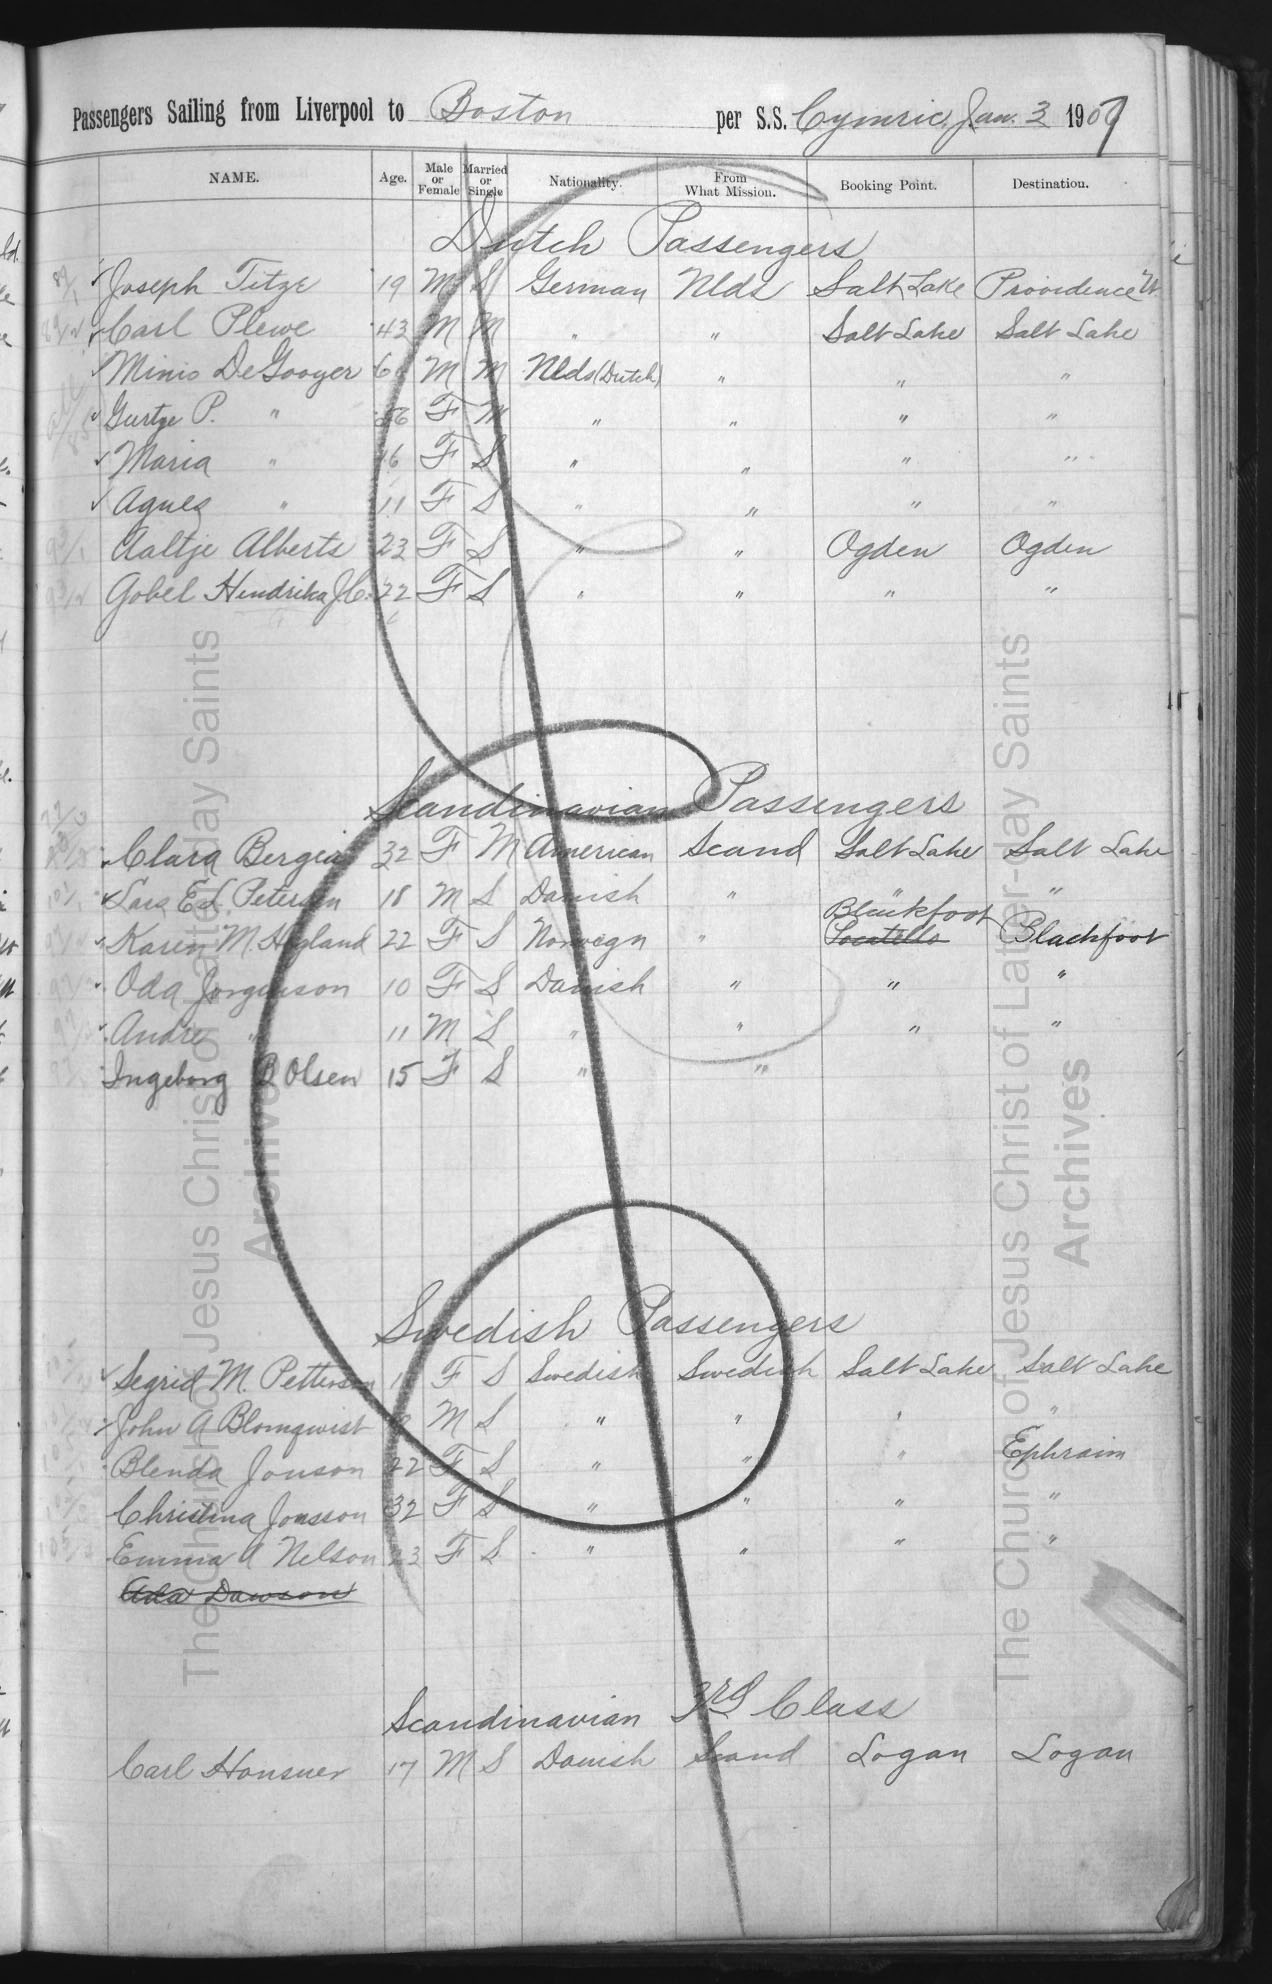 Passengers Sailing from Liverpool to Boston per S.S. Cymric, Jan. 3 1907
NAME. Age. Male or Female Married or Single Nationality. From What Mission. Booking Point. Destination.
Dutch Passengers
Joseph Titze 19 M S German Nlds Salt Lake Providence Ut
Carl Plewe 43 M M " " Salt Lake Salt Lake
Minis DeGooyer M M Nlds (Dutch) " " "
Gurtje P. " 56 F M " " " "
Maria " 16 F S " " " "
Agnes " 11 F S " " " "
Aaltje Alberts 23 F S " " Ogden Ogden
Gobel Hendrika J.C. 22 F S " " " "
Scandinavian Passengers
Clara Bergia 32 F M American Scand Salt Lake Salt Lake
Lars E.L. Petersen 18 M S Danish " " "
Blackfoot
Karen M. Hegland 22 F S Norwegn " Pocatello Blackfoot
Oda Jorgenson 10 F S Danish " " "
Andre " 11 M S " " " "
Ingeborg B Olsen 15 F S " "
Swedish Passengers
Segrid M. Petterson F S Swedish Swedish Salt Lake Salt Lake
John A Blomqwist M S " " " "
Blenda Jonson 22 F S " " " Ephraim
Christina Jonsson 32 F S " " " "
Emma A Nelson 23 F S " " " "
Ada Dawson
Scandinavian 3rd Class
Carl Hansner 17 M S Danish Scand Logan Logan
The Church of Jesus Christ of Latter-day Saints
Archives
The Church of Jesus Christ of Latter-day Saints
Archives